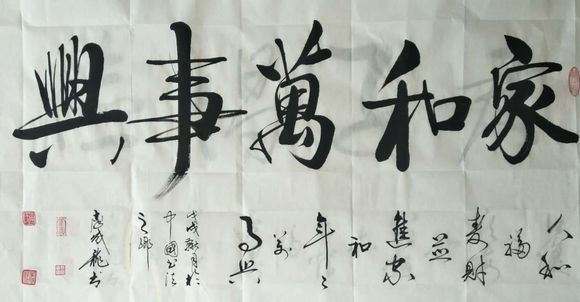 家和萬事興
人和
福
財
並
進家
和
年々
万
事興
戊戌月於
中國書法
之鄉
龍書